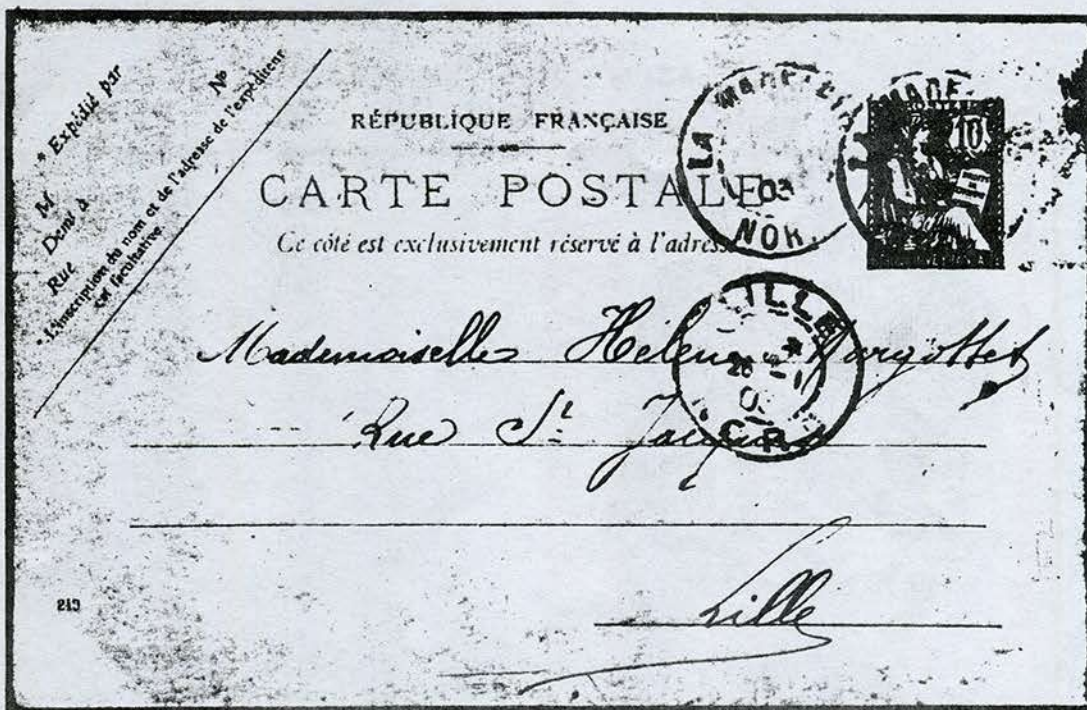 * Expédié par
M
Demt à
Rue N°
* L'inscription du nom et de l'adresse de l'expéditeur
est facultative
RÉPUBLIQUE FRANÇAISE
CARTE POSTALE
Ce côté est exclusivement réservé à l'adresse
LA
03
NOR.
10
LILLE
Mademoiselle Hélène
Rue St
Lille
213